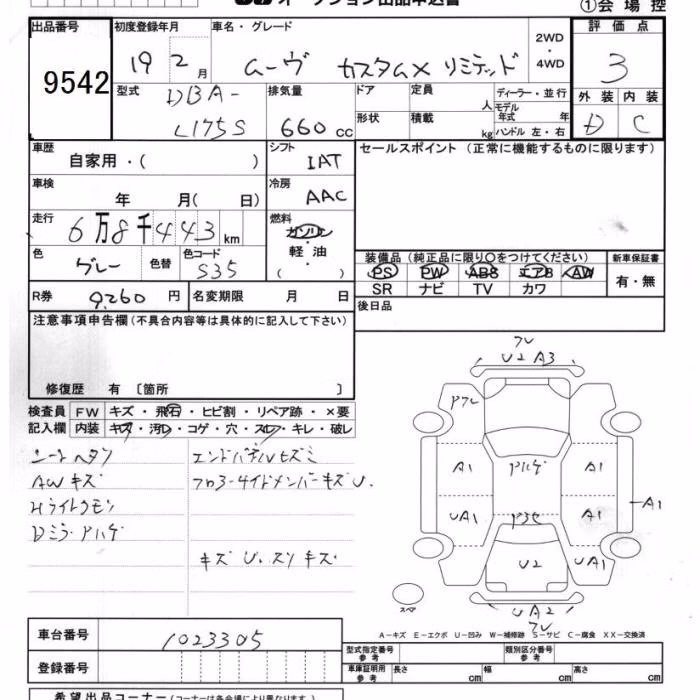 オークション出品申込書
①会場控
出品番号 9542
初度登録年月 19 2月
車名・グレード ムーヴ カスタムX リミテッド
2WD・4WD
評価点 3
型式 DBA-L175S
排気量 660cc
ドア
定員 人
ディーラー・並行
モデル年式 年
形状
積載 kg
ハンドル 左・右
外装 D
内装 C
車歴 自家用・( )
シフト IAT
セールスポイント (正常に機能するものに限ります)
車検 年 月( 日)
冷房 AAC
走行 6万8千443km
燃料 ガソリン・軽油・( )
色 グレー
色替
色コード S35
装備品 (純正品に限り○をつけてください)
新車保証書
PS PW ABS エアB AW
SR ナビ TV カワ
有・無
R券 9,260円
名変期限 月 日
後日品
注意事項申告欄(不具合内容等は具体的に記入して下さい)
修復歴 有 〔箇所 〕
検査員記入欄
FW キズ・飛石・ヒビ割・リペア跡・×要
内装 キズ・汚レ・コゲ・穴・スレ・キレ・破レ
シートヘタリ
エンドパネルヒズミ
AWキズ
フロアサイドメンバーキズU.
Hライトクモリ
Dミラーアハゲ
キズU.スリキズ
フレ
U2 A3
アフレ
A1 アハゲ A1
A1
UA1 アヨセ A1
U2 UA1
UA2
フレ
スペア
A-キズ E-エクボ U-凹み W-補修跡 S-サビ C-腐食 XX-交換済
車台番号 1023305
型式指定番号 参考
類別区分番号 参考
登録番号
車庫証明用 参考
長さ cm 幅 cm 高さ cm
希望出品コーナー(コーナーは各会場により異なります)